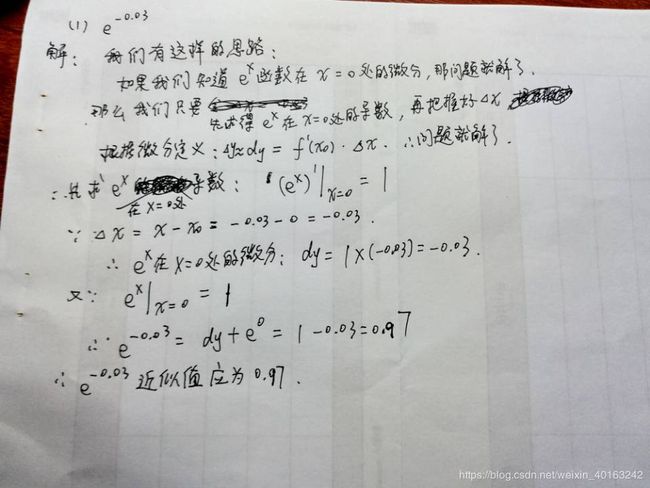 (1) e^-0.03
解: 我们有这样的思路:
如果我们知道 e^x 函数在 x=0 处的微分, 那问题就解了.
那么我们只要 先求得 e^x 在 x=0 处的导数, 再把握好 Δx
根据微分定义: Δy≈dy = f'(x₀)·Δx. ∴问题就解了.
∴先求 e^x 在x=0处 导数: (e^x)'|x=0 = 1
∵ Δx = x - x₀ = -0.03 - 0 = -0.03.
∴ e^x 在 x=0 处的微分: dy = 1×(-0.03) = -0.03.
又∵ e^x|x=0 = 1
∴ e^-0.03 = dy + e^0 = 1 - 0.03 = 0.97
∴ e^-0.03 近似值应为 0.97.
https://blog.csdn.net/weixin_40163242